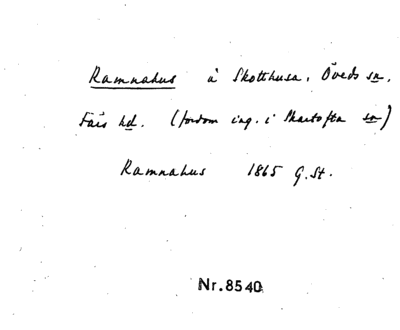 Ramnahus å Skotthusa, Öveds sn,
Färs hd. (fordom ing. i Skartofta sn)
Ramnahus 1865 G.St.
Nr.8540